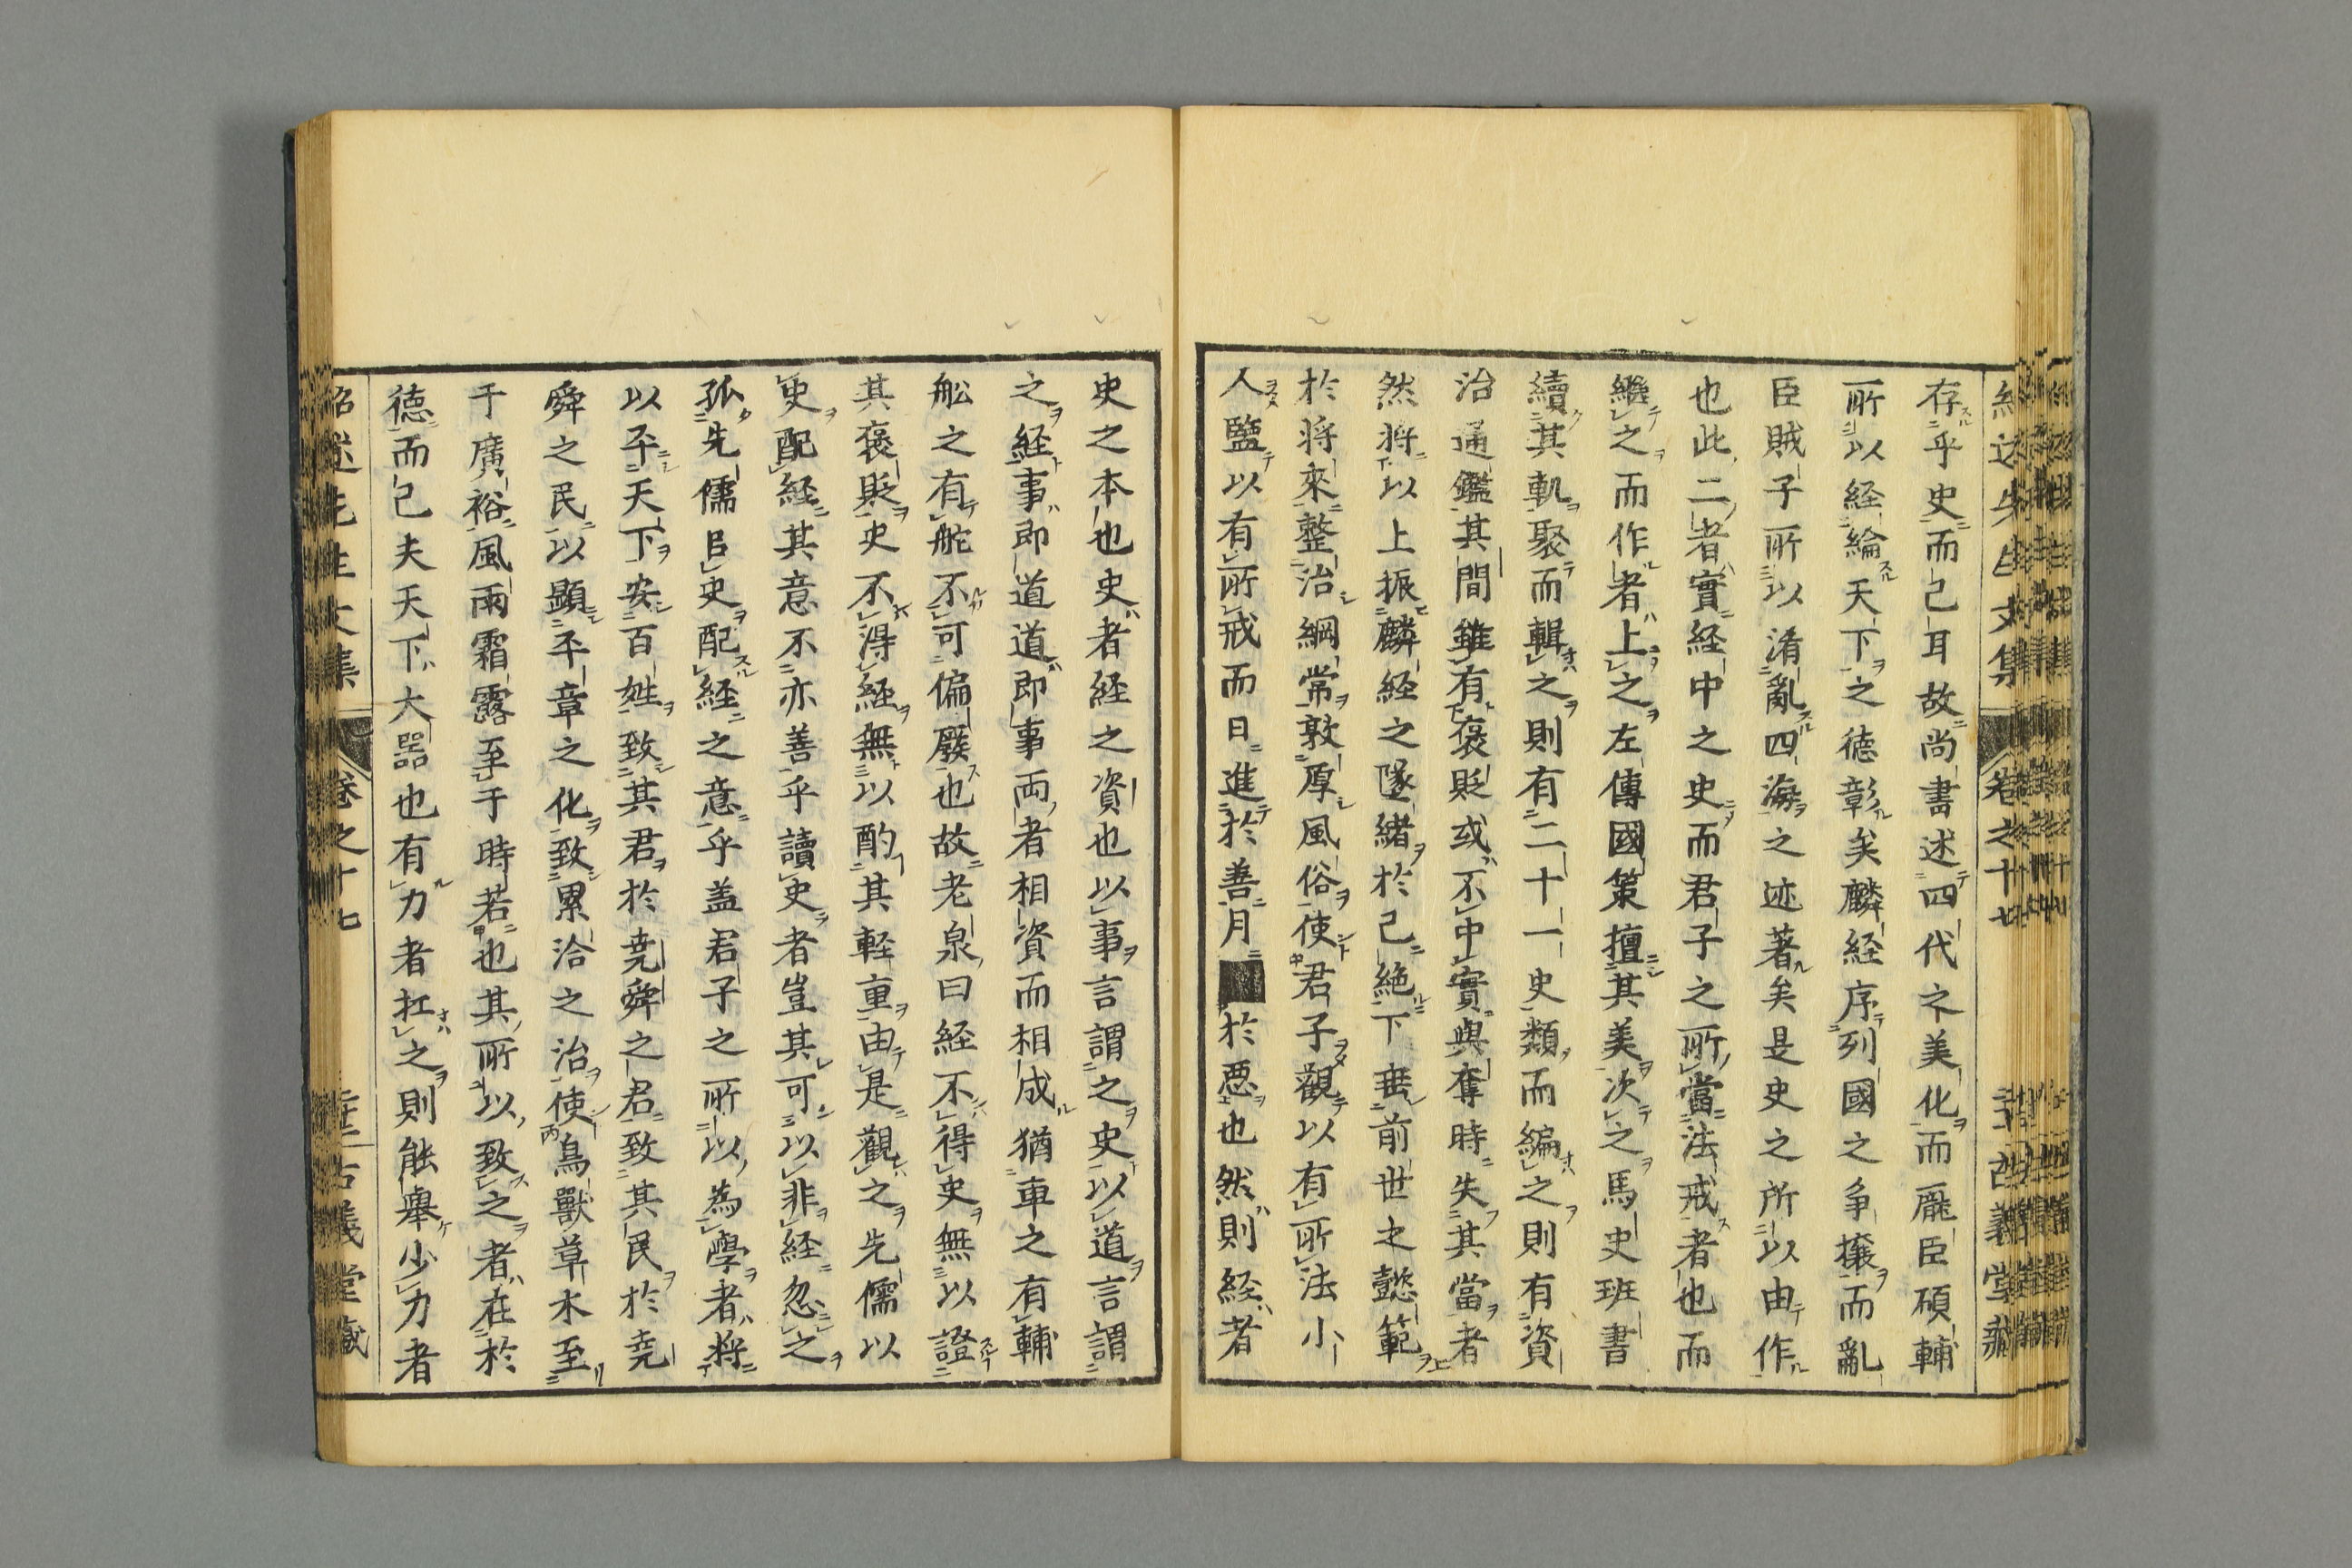 存乎史而已耳故尚書述四代之美化而厖臣碩輔
所以経綸天下之徳彰矣麟経序列國之争攘而亂
臣賊子所以淆亂四海之迹著矣是史之所以由作
也此二者實経中之史而君子之所當法戒者也而
繼之而作者上之左傳國策擅其美次之馬史班書
續其軌聚而輯之則有二十一史類而編之則有資
治通鑑其間雖有褒貶或不中實與奪時失其當者
然將以上振麟経之墜緒於己絶下垂前世之懿範
於将來整治綱常敦厚風俗使君子觀以有所法小
人鹽以有所戒而日進於善月■於悪也然則経者
史之本也史者経之資也以事言謂之史以道言謂
之経事即道道即事両者相資而相成猶車之有輔
舩之有舵不可偏廢也故老泉曰経不得史無以證
其褒貶史不得経無以酌其軽重由是觀之先儒以
史配経其意不亦善乎讀史者豈其可以非経忽之
孤先儒㠯史配経之意乎盖君子之所以為學者將
以平天下安百姓致其君於尭舜之君致其民於尭
舜之民以顯平章之化致累洽之治使鳥獸草木至
于廣裕風雨霜露至于時若也其所以致之者在於
徳而已夫天下大器也有力者扛之則能舉少力者
紹述先生文集 卷之十七 古義堂藏